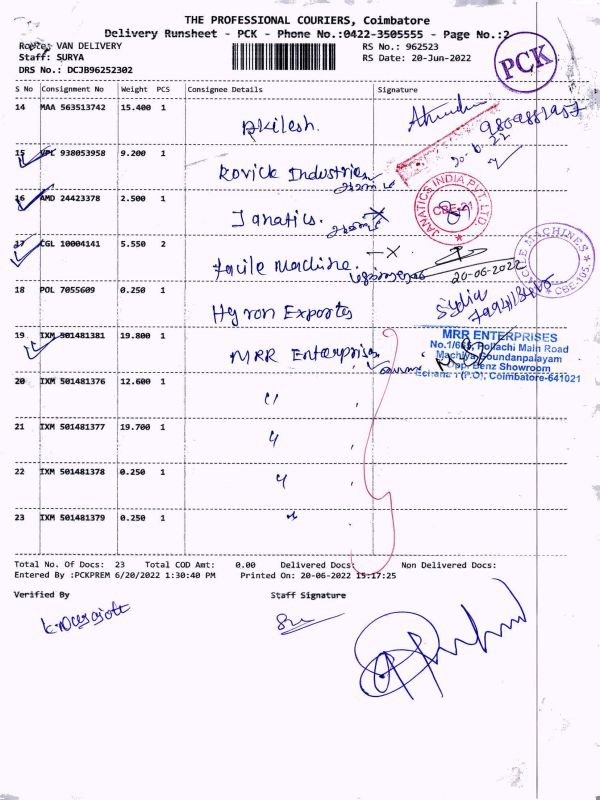 THE PROFESSIONAL COURIERS, Coimbatore
Delivery Runsheet - PCK - Phone No.:0422-3505555 - Page No.:2
Route: VAN DELIVERY RS No.: 962523
Staff: SURYA RS Date: 20-Jun-2022
DRS No.: DCJB96252302
PCK
S No Consignment No Weight PCS Consignee Details Signature
14 MAA 563513742 15.400 1 Akilesh.
15 VPL 938053958 9.200 1 Rovick Industries
16 AMD 24423378 2.500 1 Janatics.
JANATICS INDIA PVT. LTD
CBE-21
17 CGL 10004141 5.550 2 Facile Machine.
20-06-2022
FACILE MACHINES
CBE-105.
18 POL 7055609 0.250 1 Hyron Exports
19 IXM 501481381 19.800 1 MRR Enterprises
MRR ENTERPRISES
Pollachi Main Road
Opp. Benz Showroom
(P.O), Coimbatore-641021
20 IXM 501481376 12.600 1 "
21 IXM 501481377 19.700 1 "
22 IXM 501481378 0.250 1 "
23 IXM 501481379 0.250 1 "
Total No. Of Docs: 23 Total COD Amt: 0.00 Delivered Docs: Non Delivered Docs:
Entered By :PCKPREM 6/20/2022 1:30:40 PM Printed On: 20-06-2022 15:17:25
Verified By Staff Signature